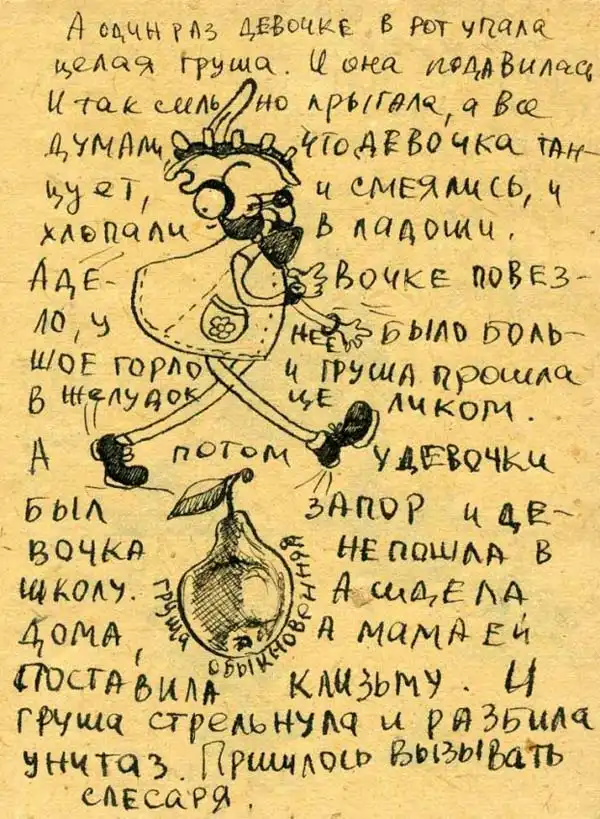 А один раз девочке в рот упала
целая груша. И она подавилась
И так сильно прыгала, а все
думали, что девочка тан-
цует, и смеялись, и
хлопали в ладоши.
А де- вочке повез-
ло, у неё было боль-
шое горло и груша прошла
в желудок це ликом.
А потом у девочки
был запор и де-
вочка не пошла в
школу. А сидела
дома, а мама ей
поставила клизму. И
груша стрельнула и разбила
унитаз. Пришлось вызывать
слесаря.
груша обыкновенная